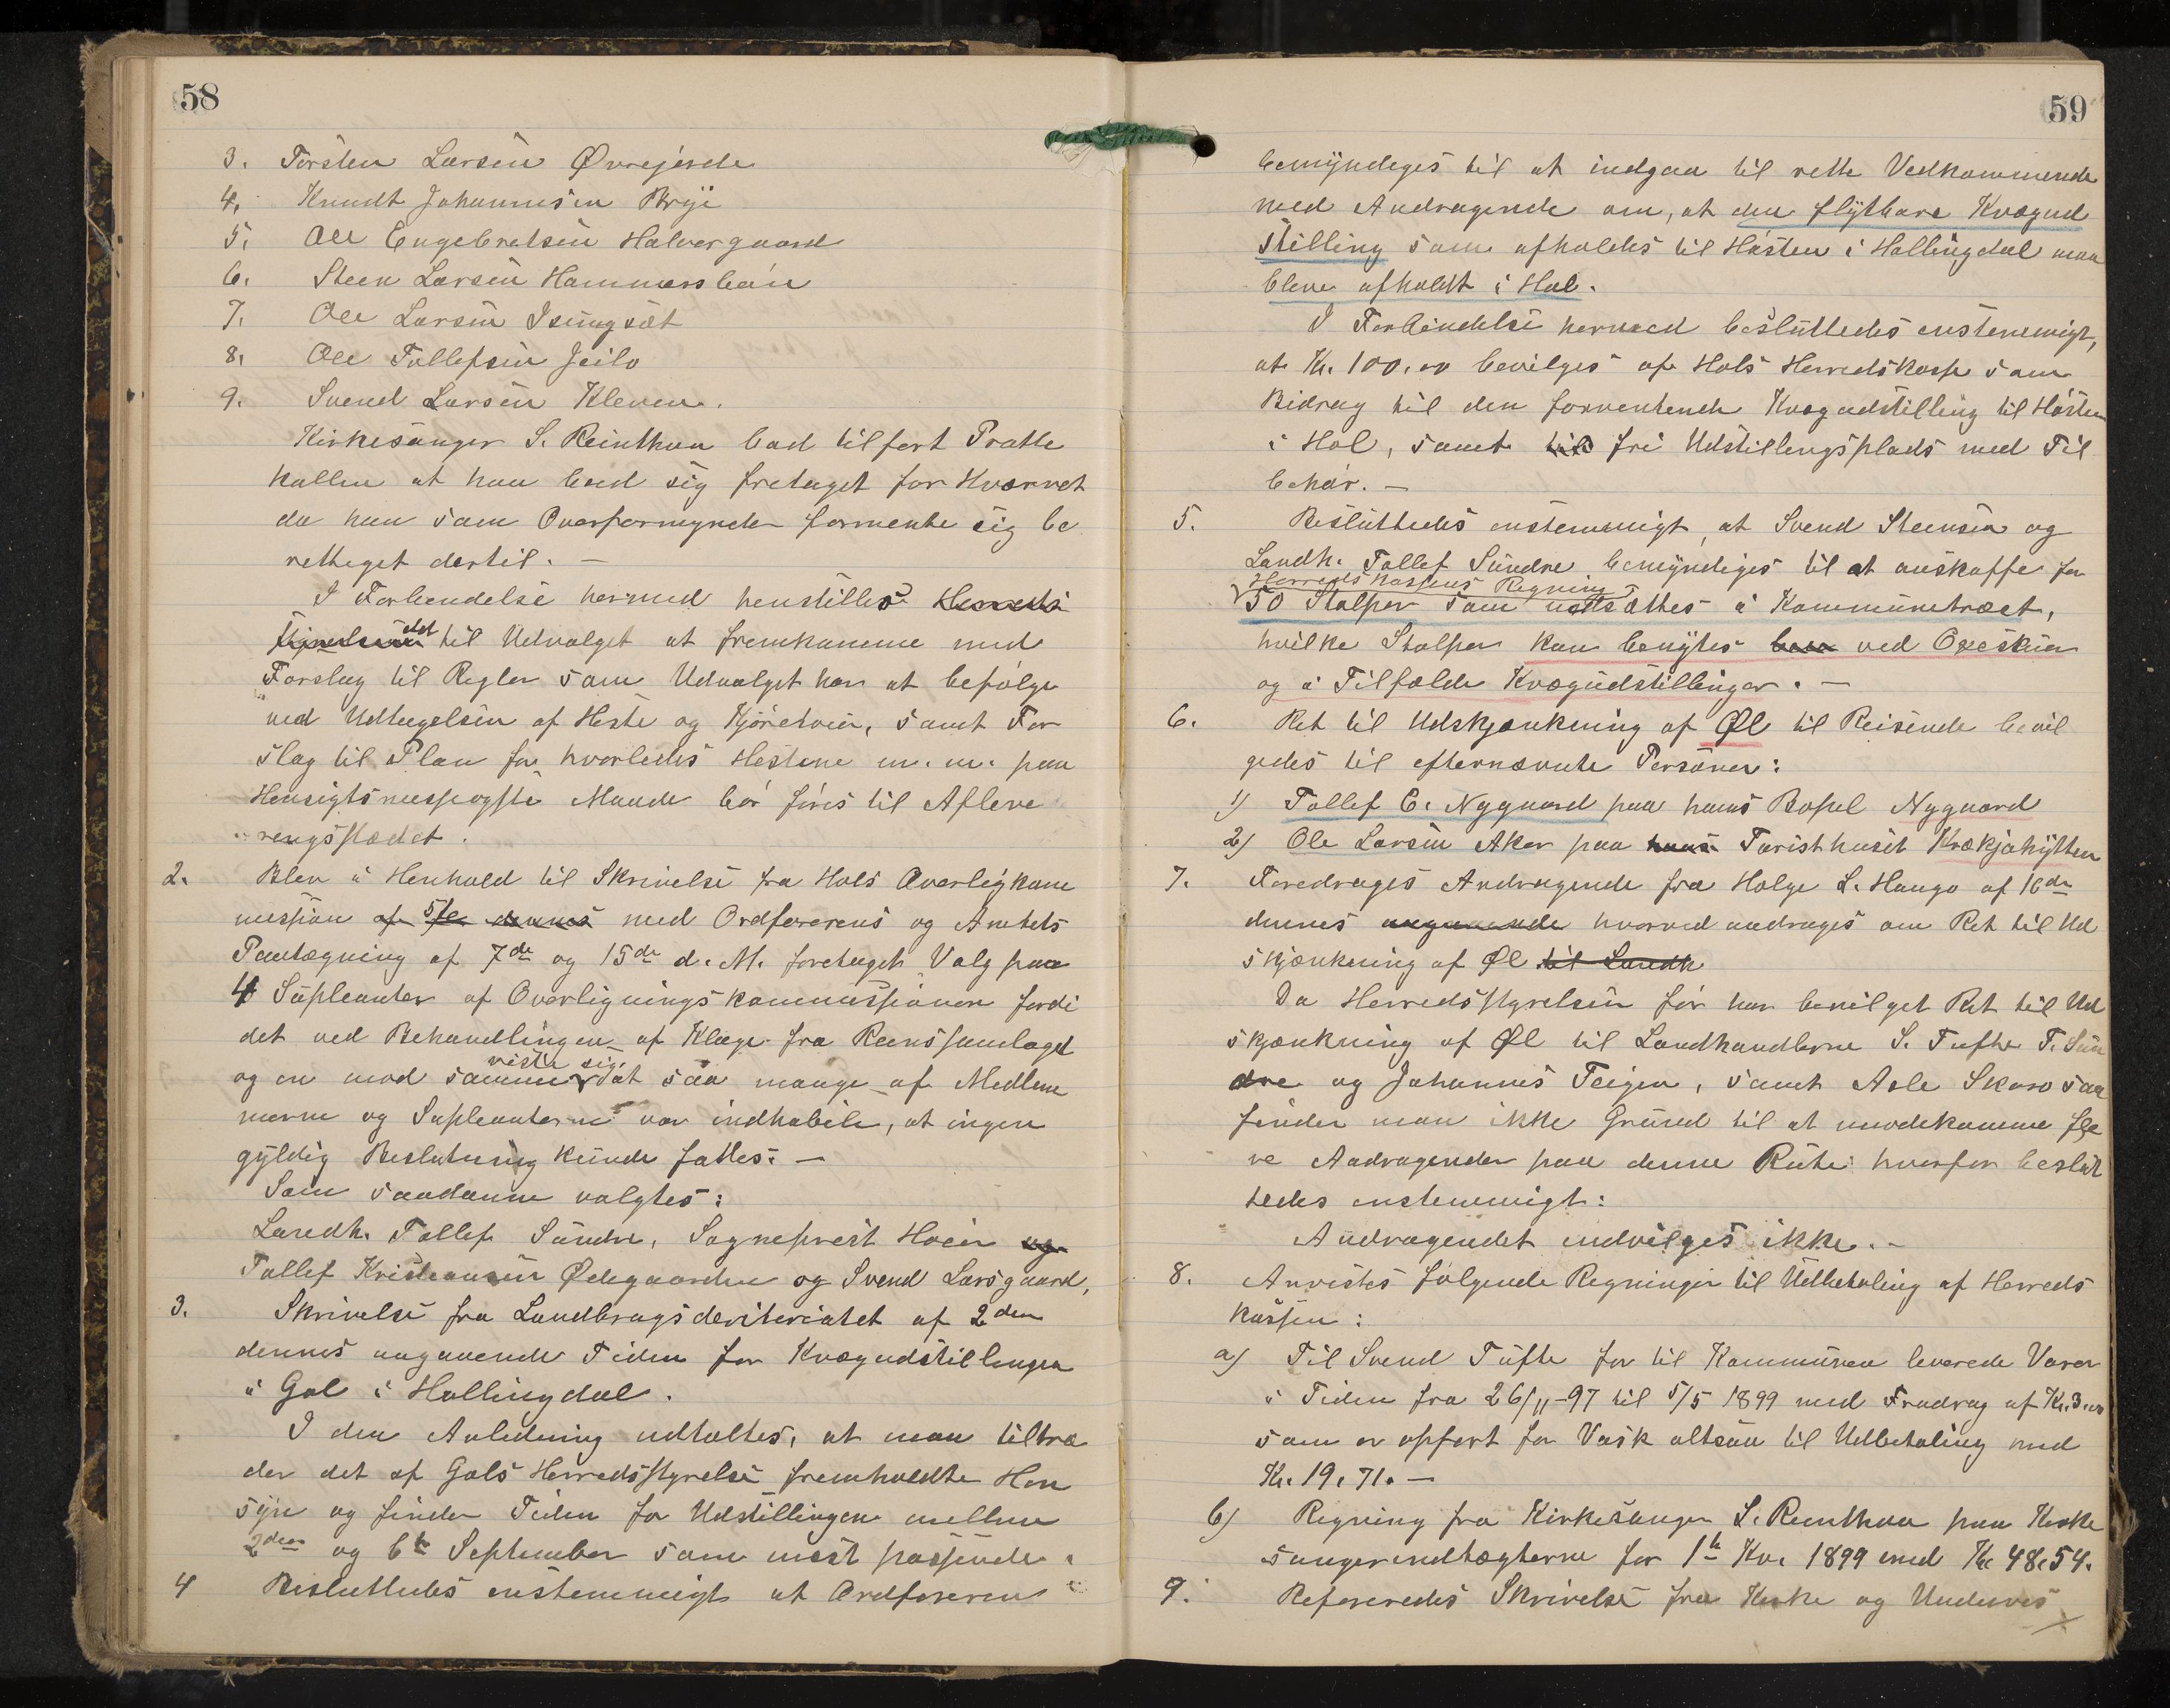 58
3. Torsten Larsen Øvrejorde
4. Knudt Johannesen Brye
5. Ole Engebretsen Halvorgaard
6. Steen Larsen Hammersbøen
7. Ole Larsen Isungset
8. Ole Tollefsen Jeilo
9. Svend Larsen Kleven.
Kirkesanger S. Reinthon bad tilført Protto
kollen at han bad sig fritaget for Hvervet
da han som Overformynder formente sig be
rettiget dertil. —
I Forbindelse hermed henstilles Herreds
styrelsen det til Udvalget at fremkomme med
Forslag til Regler som Udvalget har at befølge
ved Udtagelsen af Heste og Kjøretøier, samt For
slag til Plan for hvorledes Hestene m. m. paa
Hensigtsmessigste Maade bør føres til Afleve
ringsstædet.
2. Blev i Henhold til Skrivelse fra Hols Overligkom
mission af 5te dennes med Ordførerens og Amtets
Paategning af 7de og 15de d. M. foretaget Valg paa
4 Supleanter af Overligningskommissionen fordi
det ved Behandlingen af Klage fra Rensamlaget
viste sig
og en mod samme at saa mange af Medlem
merne og Supleanterne var indhabile, at ingen
gyldig Beslutning kunde fattes: —
Som saadanne valgtes:
Landh. Tollef Sundre, Sogneprest Høeir og
Tollef Kristiansen Ødegaarden og Svend Larsgaard,
3. Skrivelse fra Landbrugsderiteriatet af 2den
dennes angaaende Tiden for Kvægudstillingen
i Gol i Hallingdal.
I den Anledning udtaltes, at man tiltræ
der det af Gols Herredsstyrelse fremholdte Hen
syn og finder Tiden for Udstillingen mellem
2den og 6te September som mest passende.
4 Besluttedes enstemmigt at Ordføreren
59
bemyndiges til at indgaa til rette Vedkommende
med Andragende om, at den flytbare Kvægud
stilling som afholdes til Høsten i Hallingdal maa
bleve afholdt i Hol.
I Forbindelse hermed besluttedes enstemmigt,
at Kr. 100.00 bevilges af Hols Herredskasse som
Bidrag til den forventende Kvægudstilling til Høsten
i Hol, samt til fri Udstillingsplads med Til
behør. —
5. Besluttedes enstemmigt, at Svend Steensen og
Landh. Tollef Sundre bemyndiges til at anskaffe for
Herredskassens Regning
50 Stolper som nedsættes i Kommunetræet,
hvilke Stolper kan benyttes ben ved Oxeskuer
og i Tilfælde Kvægudstillinger. —
6. Ret til Udskjænkning af Øl til Reisende bevil
gedes til efternævnte Personer:
1) Tollef E. Nygaard paa hans Bopel Nygaard
2) Ole Larsen Aker paa hans Turisthuset Krækjahytten
7. Foredroges Andragende fra Holge L. Haugo af 16de
dennes angaaende hvorved andrages om Ret til Ud
skjænkning af Øl til Landh
Da Herredsstyrelsen før har bevilget Ret til Ud
skjænkning af Øl til Landhandlerne S. Tufte T. Sun
dre og Johannes Teigen, samt Asle Skaro saa
finder man ikke Grund til at imødekomme fle
re Andragender paa denne Rute hvorfor beslut
tedes enstemmigt:
Andragendet indvilges ikke. —
8. Anvistes følgende Regninger til Udbetaling af Herreds
kassen:
a) Til Svend Tufte for til Kommunen leverede Varer
i Tiden fra 26/11-97 til 5/5 1899 med Fradrag af Kr. 3.00
som er opført for Vask altsaa til Udbetaling med
Kr. 19.71. —
b) Regning fra Kirkesanger S. Reinthon paa Kirke
sangerindtægterne for 1te Kv. 1899 med Kr. 48.54.
9. Refereredes Skrivelse fra Kirke og Undervis